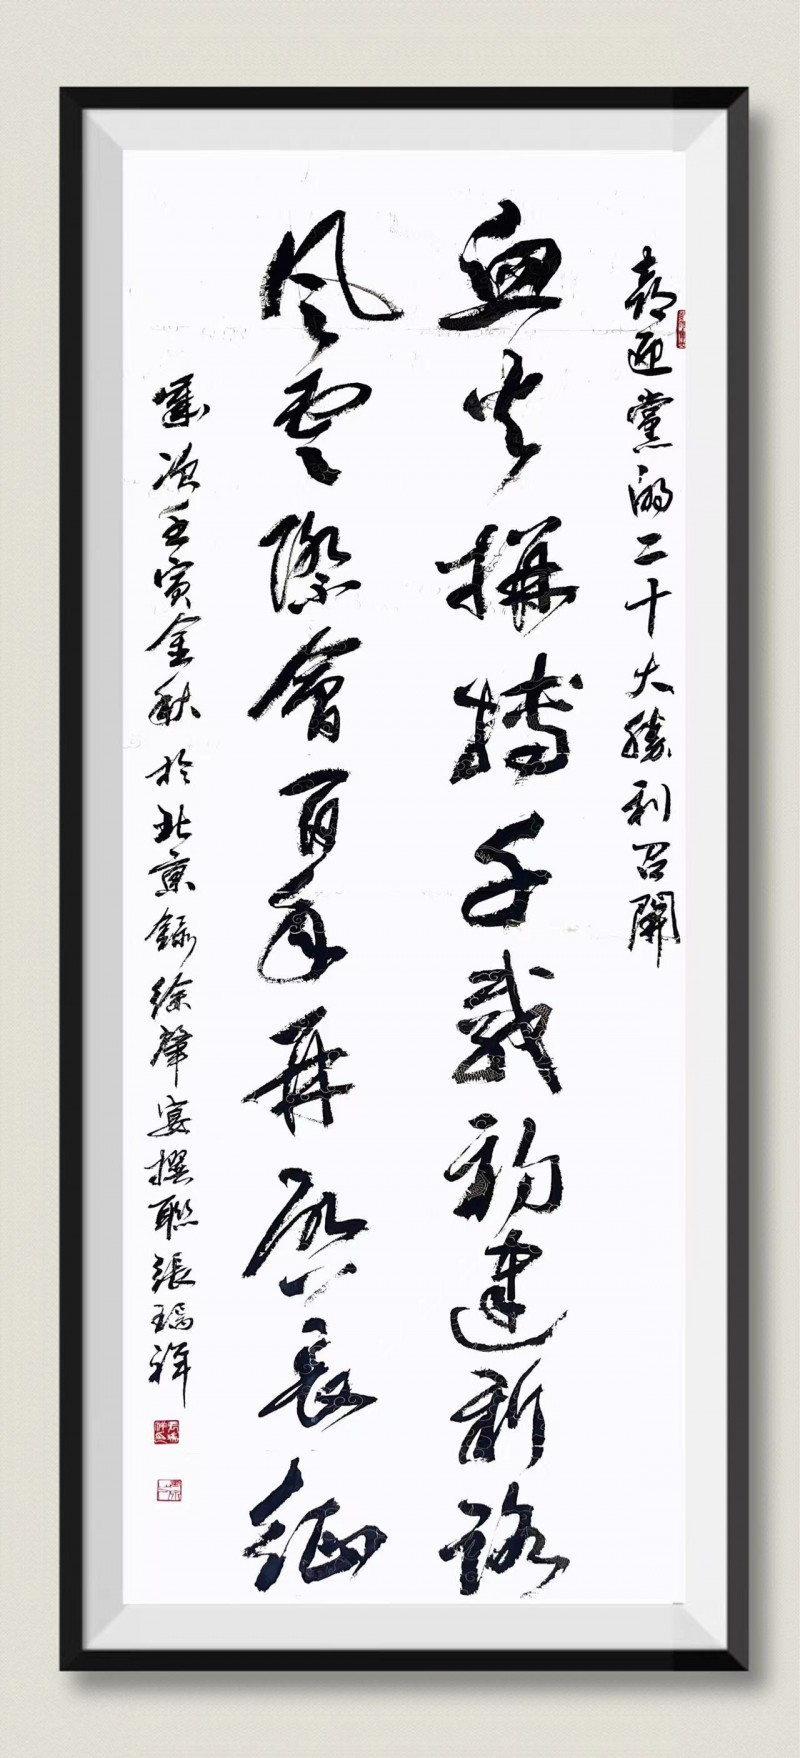 喜迎黨的二十大勝利召開
血火拼搏千載初建新路
風雲際會百年再啟長征
歲次壬寅金秋於北京錄徐肇宴撰聯張瑞祥